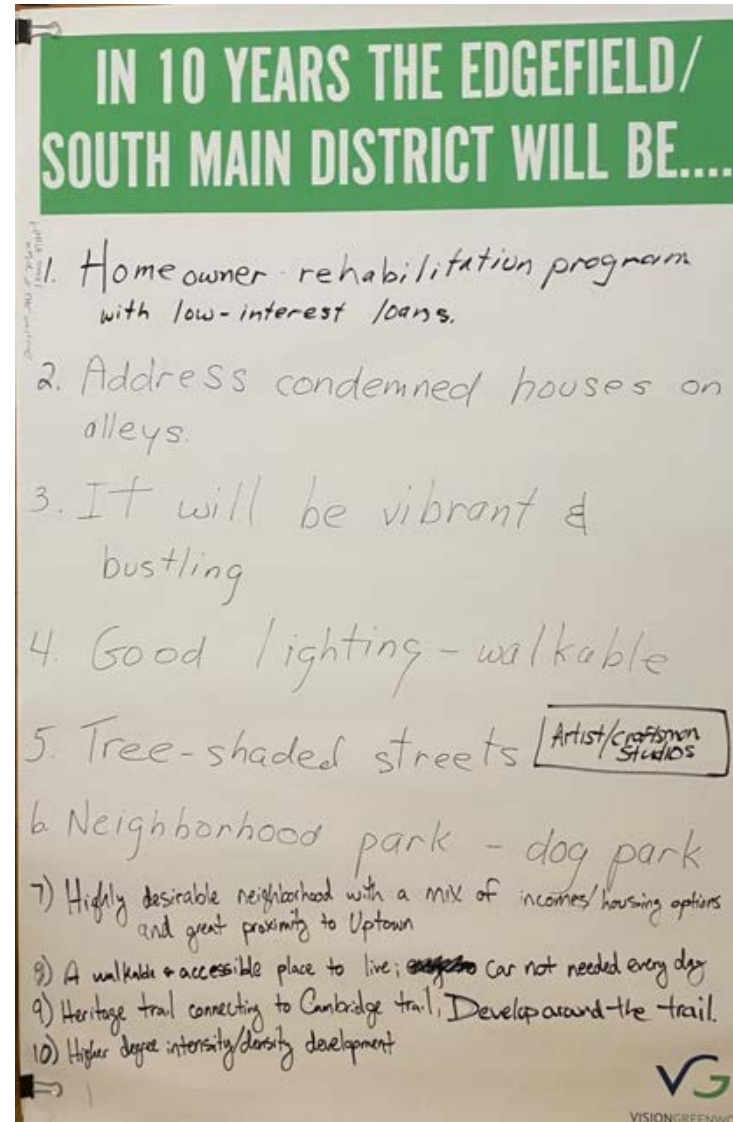 IN 10 YEARS THE EDGEFIELD/
SOUTH MAIN DISTRICT WILL BE....
1. Homeowner rehabilitation program
with low-interest loans.
2. Address condemned houses on
alleys.
3. It will be vibrant &
bustling
4. Good lighting - walkable
5. Tree-shaded streets
Artist/craftsman
Studios
6. Neighborhood park - dog park
7) Highly desirable neighborhood with a mix of incomes/housing options
and great proximity to Uptown
8) A walkable & accessible place to live; car not needed every day
9) Heritage trail connecting to Cambridge trail, Develop around the trail.
10) Higher degree intensity/density development
VG